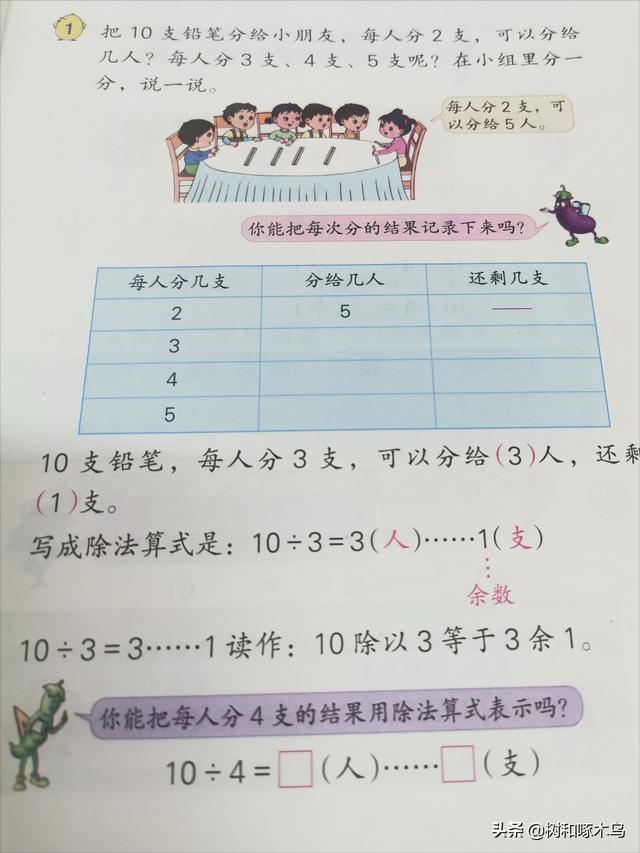 1 把 10 支铅笔分给小朋友，每人分 2 支，可以分给
几人？每人分 3 支、4 支、5 支呢？在小组里分一
分，说一说。
每人分 2 支，可
以分给 5 人。
你能把每次分的结果记录下来吗？
每人分几支 分给几人 还剩几支
2 5 ——
3
4
5
10 支铅笔，每人分 3 支，可以分给(3)人，还剩
(1)支。
写成除法算式是：10÷3=3(人)……1(支)
余数
10÷3=3……1 读作：10 除以 3 等于 3 余 1。
你能把每人分 4 支的结果用除法算式表示吗？
10÷4=□(人)……□(支)
头条 @树和啄木鸟